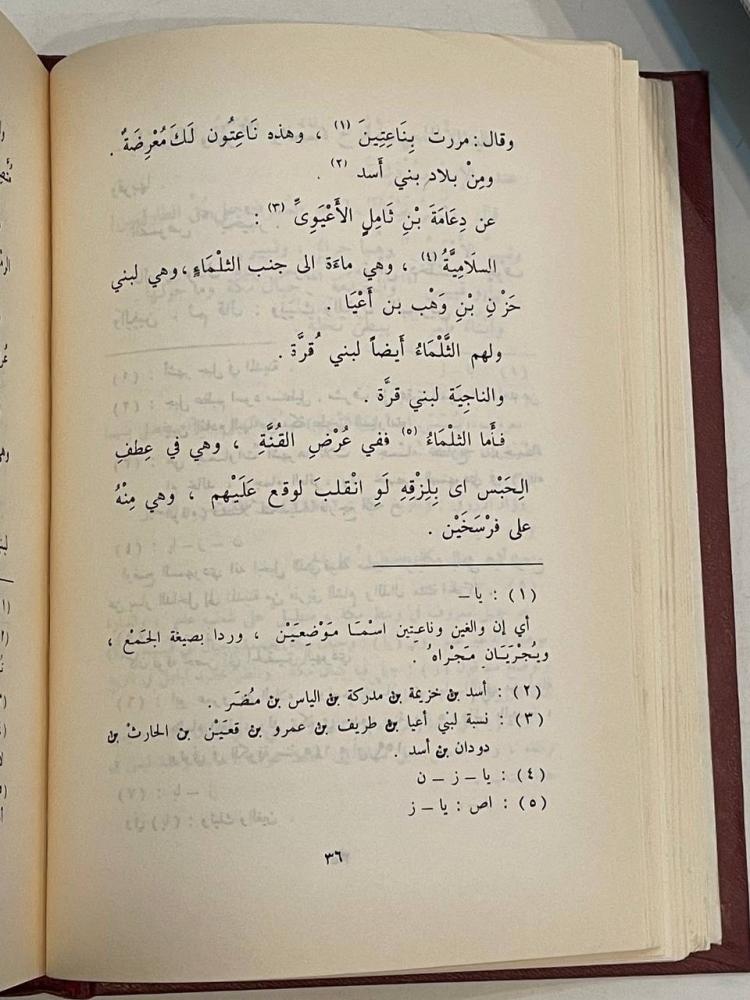 وقال : مررت بِنَاعِتِينَ (١) ، وهذه نَاعِتُون لَكَ مُعْرِضَةٌ .
ومِنْ بلاد بني أَسد (٢) .
عن دِعَامَةَ بْنِ ثَامِلٍ الأَعْيَوِىِّ (٣) :
السلَامِيَّةُ (٤) ، وهي ماءَة الى جنب الثلْمَاءِ ، وهي لبني
حَزْنِ بْنِ وَهْب بن أَعْيَا .
ولهم الثَّلْمَاءُ أَيضاً لبني ُقرَّة .
والناجِيَة لبني قرَّة .
فأَما الثلْمَاءُ (٥) ففي عُرْضِ القُنَّةِ ، وهي في عِطفِ
الحَبْس اى بِلِزْقِهِ لَو انْقلبَ لوقع عَلَيْهم ، وهي مِنْهُ
على فرْسَخَيْن .
(١) : يا –
أي إن والغين وناعِتِين اسْمَا مَوْضِعَيْن ، وردا بصيغة الجَمْع ،
ويُجْرَيَانِ مَجْرَاهُ .
(٢) : أسد بن خزيمة بن مدركة بن الياس بن مُضَر .
(٣) : نسبة لبني أعيا بن طريف بن عمرو بن قعَيْن بن الحارث بن
دودان بن أسد .
(٤) : يا – ز – ن
(٥) : اص : يا – ز
٣٦